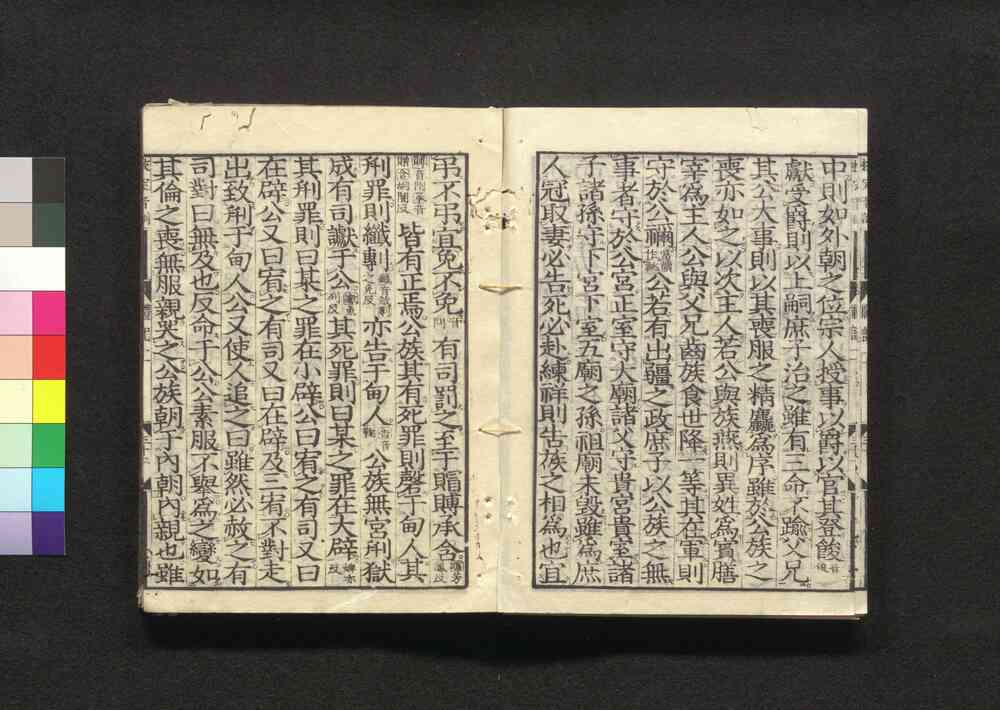 中則如外朝之位宗人授事以爵以官其登餕音俊
獻受爵則以上嗣庶子治之雖有三命不踰父兄
其公大事則以其喪服之精麤爲序雖於公族之
喪亦如之以次主人若公與族燕則異姓爲賓膳
宰爲主人公與父兄齒族食世降一等其在軍則
守於公禰公若有出疆之政庶子以公族之無
事者守於公宮正室守大廟諸父守貴宮貴室諸
子諸孫守下宮下室五廟之孫祖廟未毀雖爲庶
人冠取妻必告死必赴練祥則告族之相爲也宜
弔不弔宜免不免音問有司罰之至于賵賻承含
皆有正焉公族其有死罪則磬于甸人其
刑罪則纖剸亦告于甸人公族無宮刑獄
成有司讞于公其死罪則曰某之罪在大辟
其刑罪則曰某之罪在小辟公曰宥之有司又曰
在辟公又曰宥之有司又曰在辟及三宥不對走
出致刑于甸人公又使人追之曰雖然必赦之有
司對曰無及也反命于公公素服不舉爲之變如
其倫之喪無服親哭之公族朝于內朝內親也雖